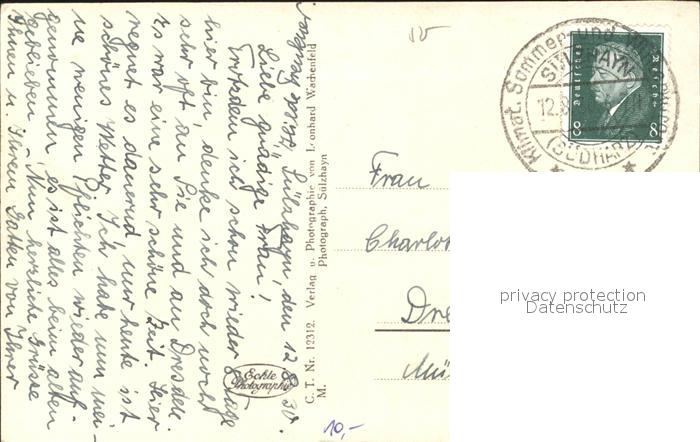 Sülzhayn, den 12.8.30.
Liebe gnädige Frau!
Trotzdem ich schon wieder 8 Tage
hier bin, denke ich doch noch
sehr oft an Sie und an Dresden.
Es war eine sehr schöne Zeit. Hier
regnet es dauernd, nur heute ist
schönes Wetter. Ich habe nun mei-
ne wenigen Pflichten wieder auf-
genommen, es ist alles beim alten
geblieben. Nun herzliche Grüsse
Ihnen u. Ihrem Gatten von Ihrer
Echte
Photographie
C. T. Nr. 12312. Verlag u. Photographie von Leonhard Wachenfeld
M. Photograph, Sülzhayn
15
Klimat. Sommer- und
SÜLZHAYN
12.8
(SÜDHARZ)
Deutsches Reich
8 8
Frau
Charlot
Dre
Mü
10,-
privacy protection
Datenschutz